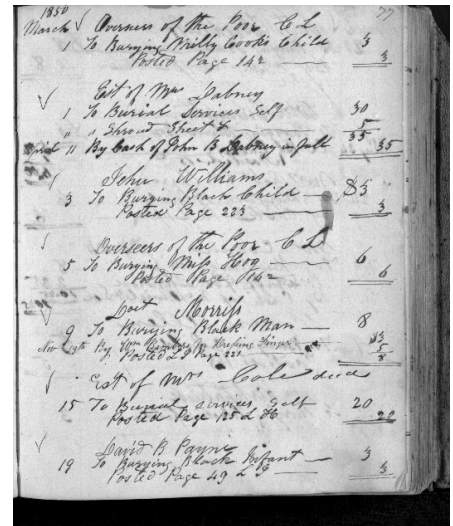 1850 77
March Overseers of the Poor C L
1 To Burying Milly Cooks Child 3
Posted Page 142 3
Est of Mrs Dabney
1 To Burial Services Self 30
" " Shroud Sheet & 5
35
" 11 By Cash of John B. Dabney in full 35
John Williams
3 To Burying Black Child $3
Posted Page 223 3
Overseers of the Poor C L
5 To Burying Miss Hog 6
Posted Page 142 6
Morriss
9 To Burying Black Man 8
Nov 19th By Dressing Finger $3
5
Posted L Page 221 8
Est of Mrs Cole decd
15 To Burial services Self 20
Posted Page 125 L H 20
David B Payne
19 To Burying Black Infant 3
Posted Page 49 L 3